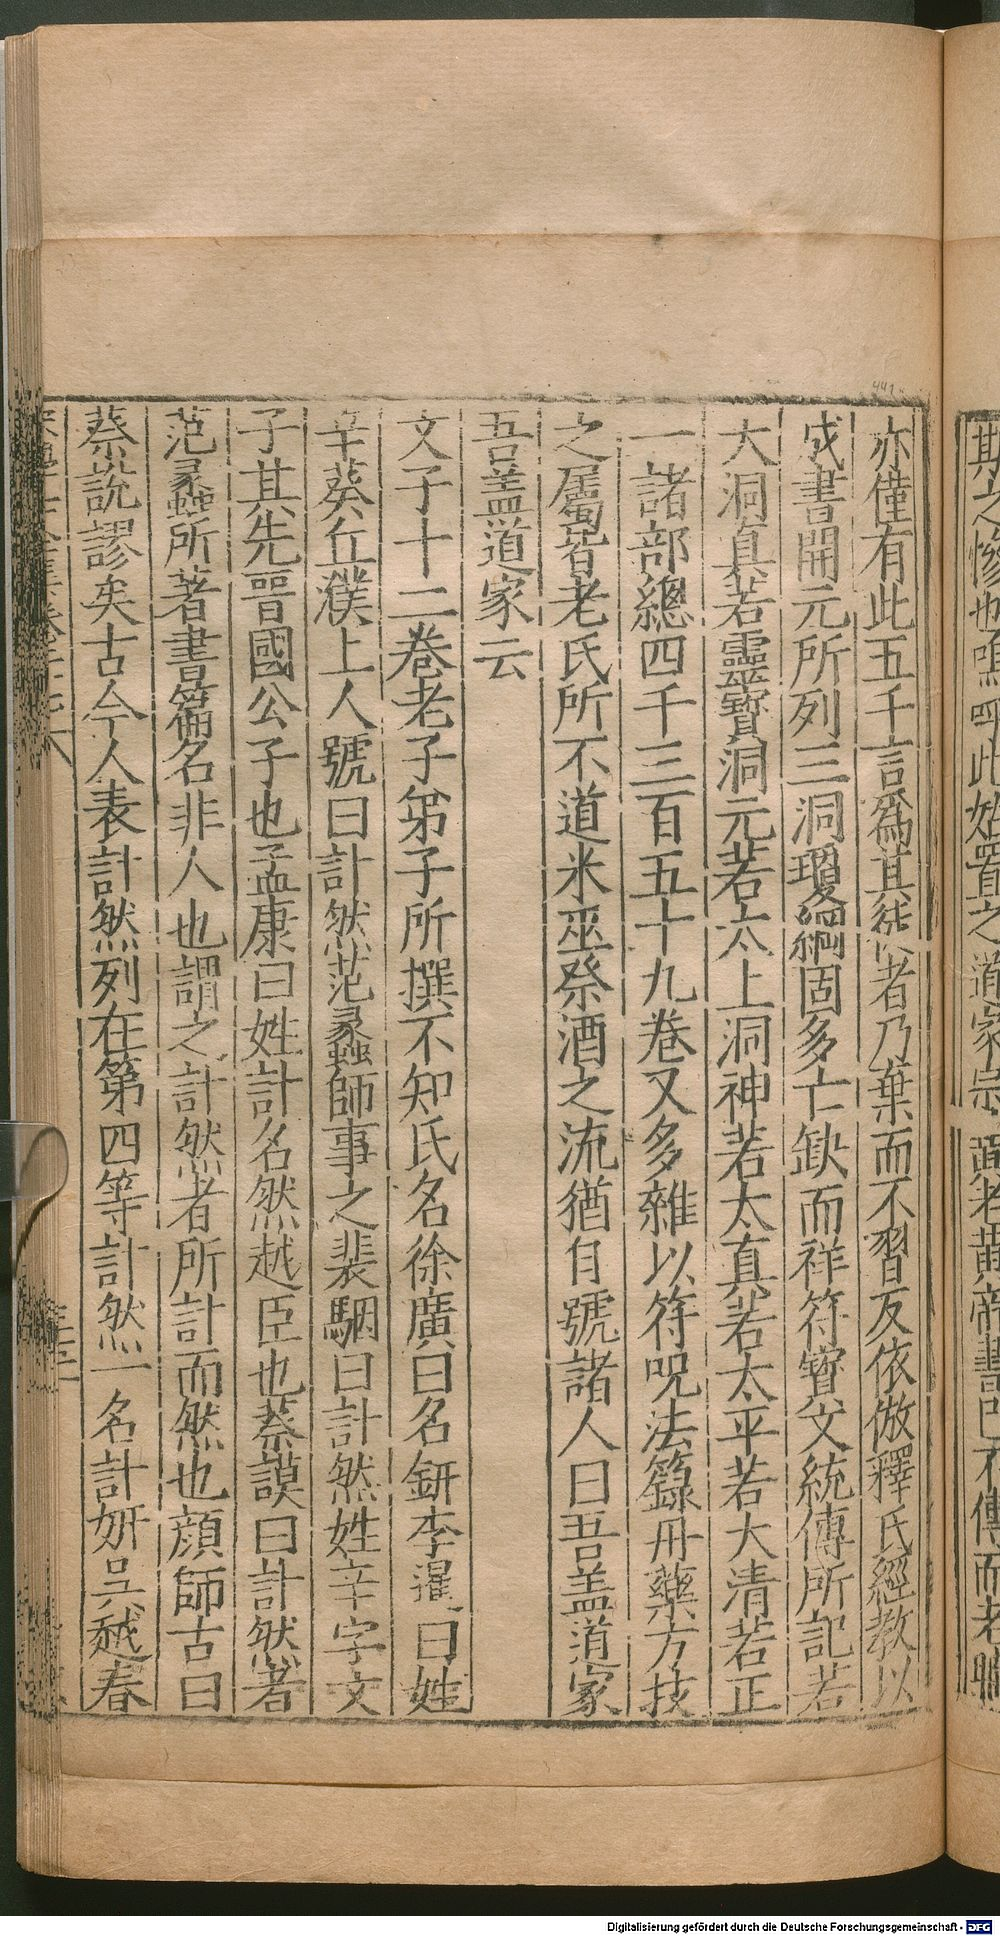 斯之慘也嗚呼此始置之道家宗黃老黃帝書已不傳而老聃
亦僅有此五千言爲其徒者乃棄而不習反依倣釋氏經教以
成書開元所列三洞瓊綱固多亡缺而祥符寶文統傳所記若
大洞眞若靈寶洞元若太上洞神若太真若太平若大清若正
一諸部總四千三百五十九卷又多雜以符呪法籙丹藥方技
之屬皆老氏所不道米巫祭酒之流猶自號諸人曰吾盖道家
吾盖道家云
文子十二卷老子弟子所撰不知氏名徐廣曰名鈃李暹曰姓
辛葵丘濮上人號曰計然范蠡師事之裴駰曰計然姓辛字文
子其先晉國公子也孟康曰姓計名然越臣也蔡謨曰計然者
范蠡所著書篇名非人也謂之計然者所計而然也顔師古曰
蔡說謬矣古今人表計然列在第四等計然一名計姸吳越春
Digitalisierung gefördert durch die Deutsche Forschungsgemeinschaft - DFG